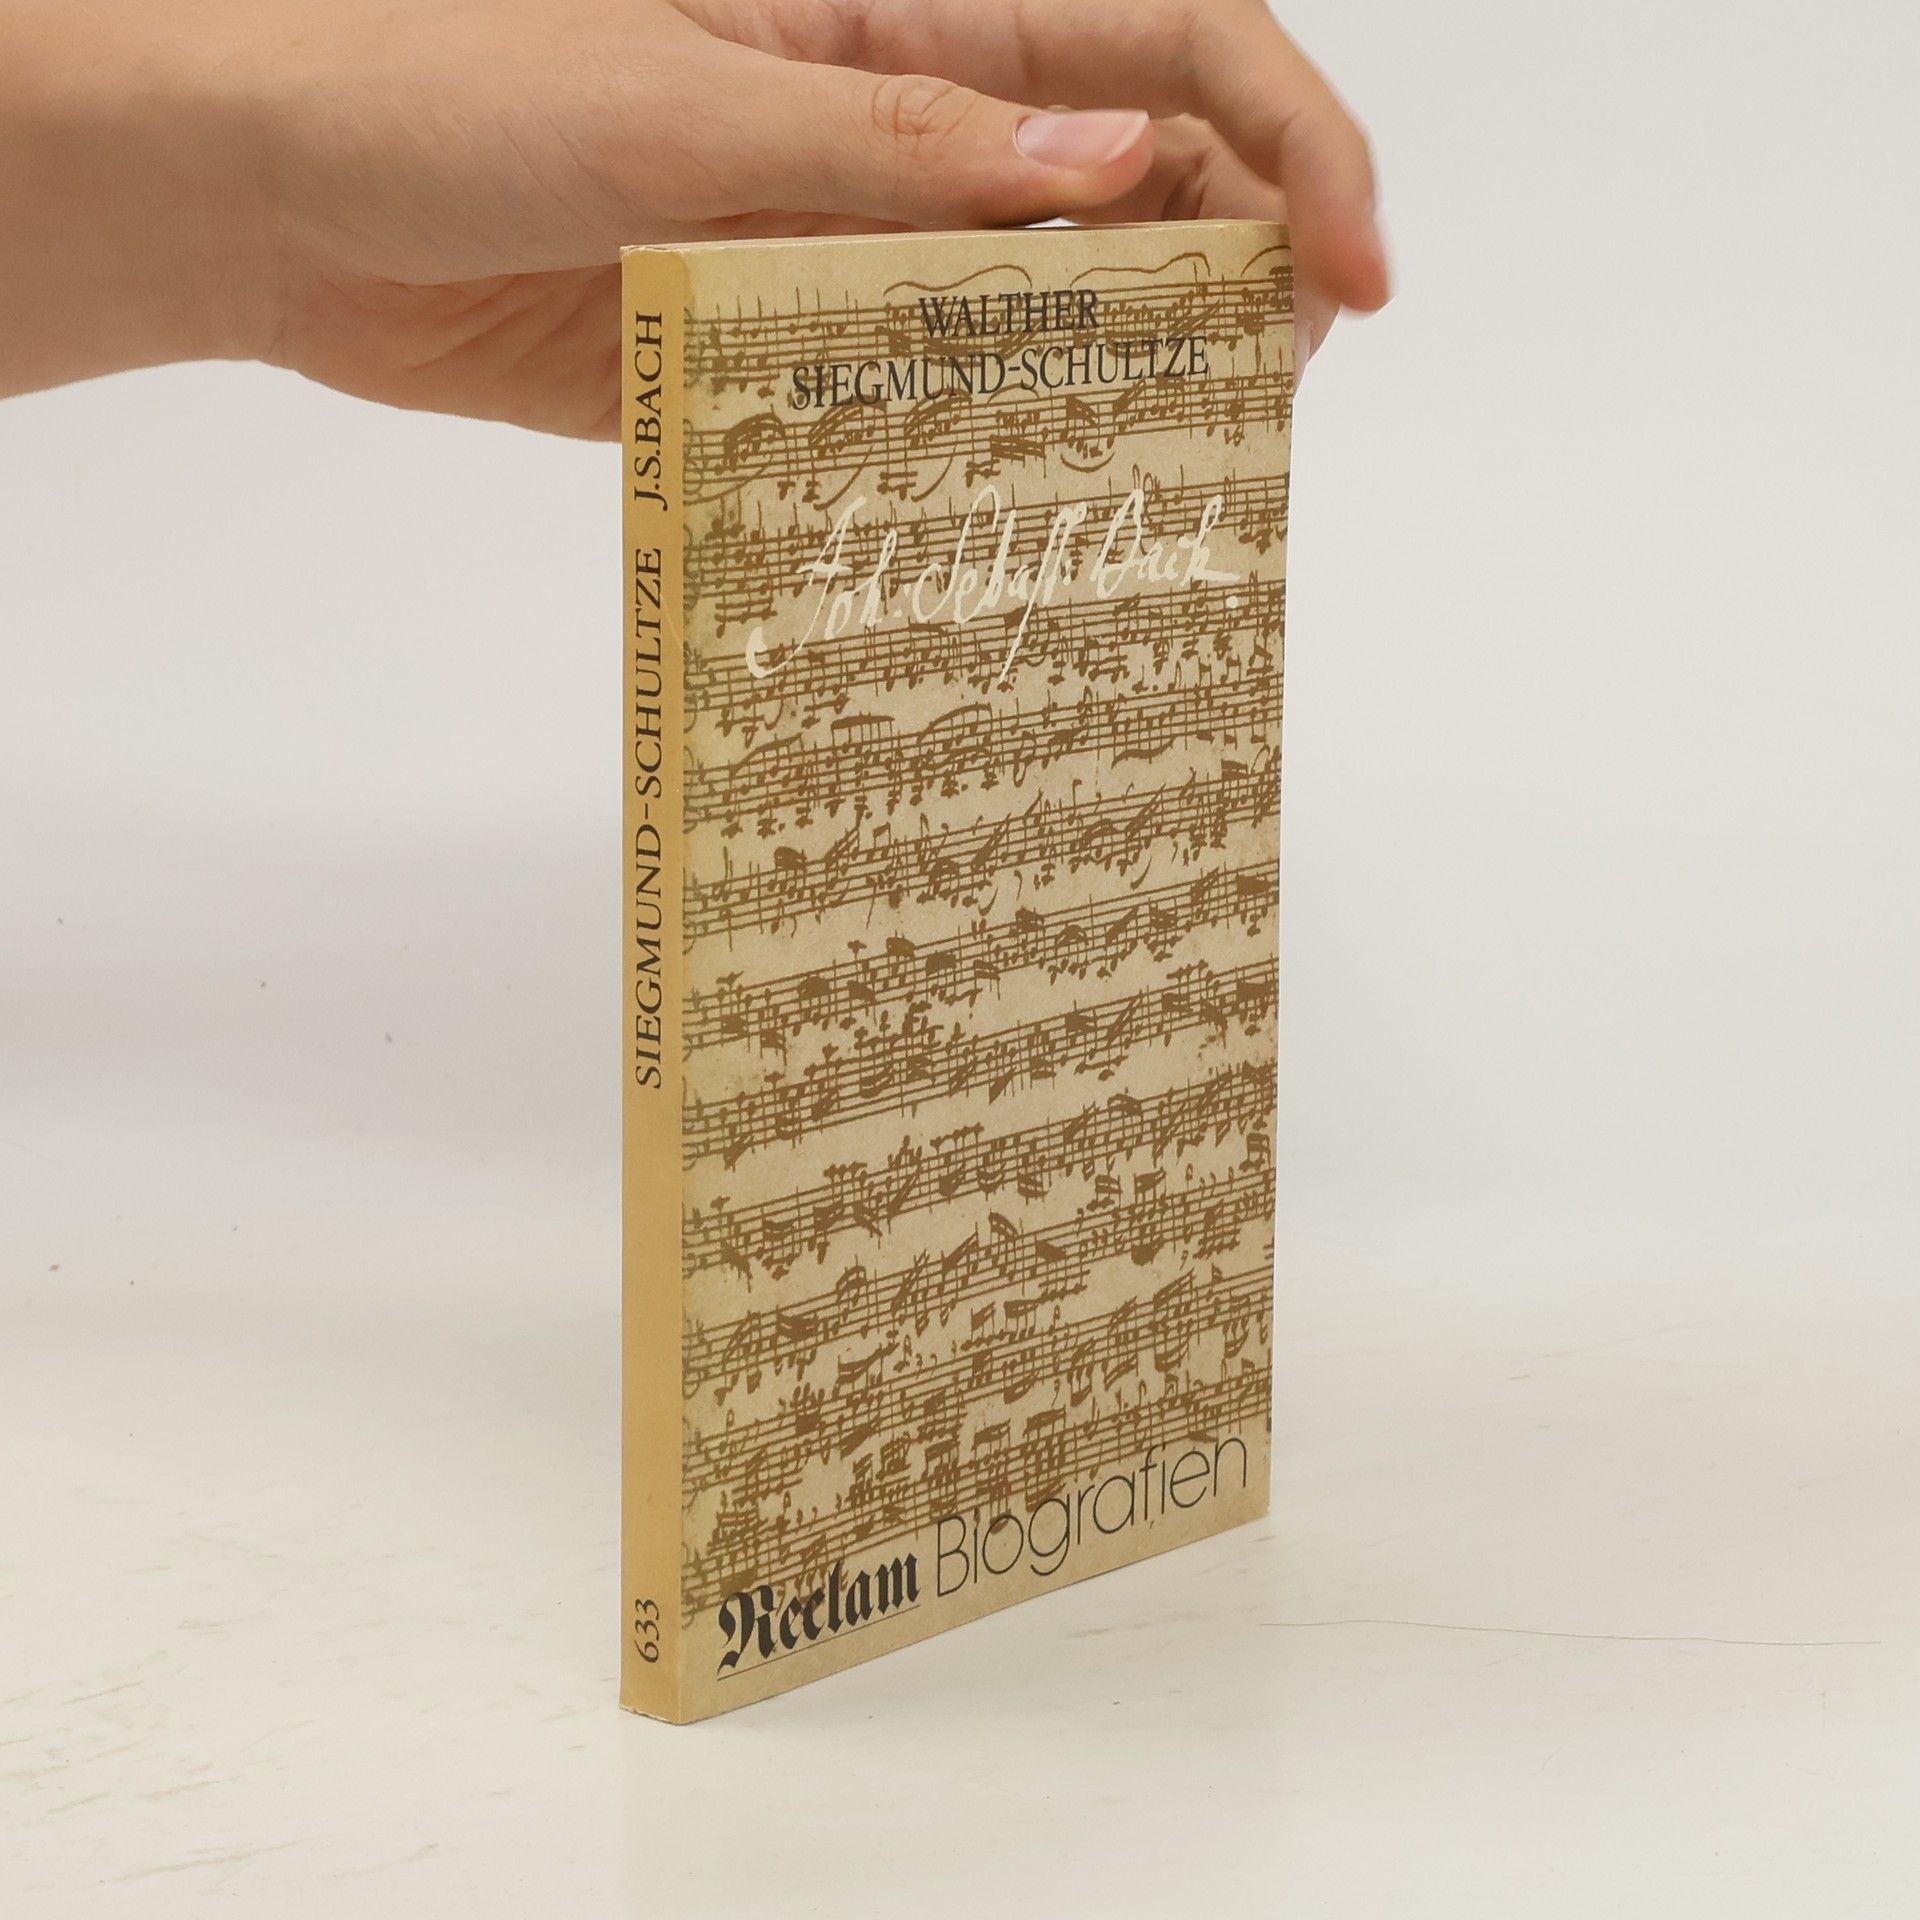 WALTHER
SIEGMUND-SCHULTZE
Joh: Sebast: Bach.
Reclam Biografien
SIEGMUND-SCHULTZE J.S.BACH
633